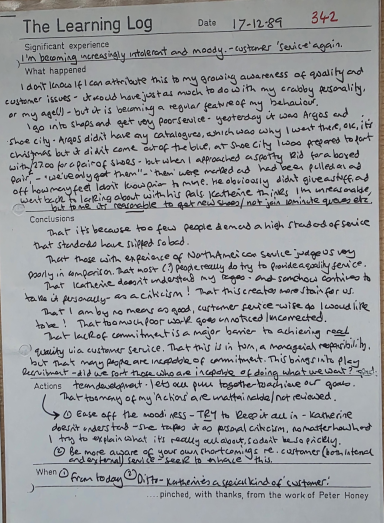 The Learning Log Date 17-12-89 342
Significant experience
I'm becoming increasingly intolerant and moody. - customer 'service' again.
What happened
I don't know if I can attribute this to my growing awareness of quality and
customer issues - it could have just as much to do with my crabby personality,
or my age(!) - but it is becoming a regular feature of my behaviour.
I go into shops and get very poor service - yesterday it was Argos and
shoe city - Argos didn't have any catalogues, which was why I went there, OK, it's
christmas but it didn't come out of the blue, at Shoe City I was prepared to part
with for a pair of shoes - but when I approached a spotty kid for a boxed
pair - 'we've only got them' - 'them' were marked and had been pulled on and
off how many feet I don't know prior to mine. He obviously didn't give a stuff and
went back to larking about with his pals. Katherine thinks I'm unreasonable,
but to me it's reasonable to get new shoes/not join 10 minute queues etc.
Conclusions
That it's because too few people demand a high standard of service
that standards have slipped so bad.
That those with experience of North American service judge us very
poorly in comparison. That most (?) people really do try to provide a quality service.
That Katherine doesn't understand my rages - and somehow continues to
take it personally - as a criticism! That this creates more strain for us.
That I am by no means as good, customer service wise as I would like
to be! That too much poor work goes unnoticed/uncorrected.
That lack of commitment is a major barrier to achieving real
quality via customer service. That this is in turn, a managerial responsibility,
but that many people are incapable of commitment. This brings into play
Recruitment - did we sort those who are incapable of doing what we want? and
Actions team development - let's all pull together to achieve our goals.
That too many of my 'Actions' are unattainable/not reviewed.
① Ease off the moodiness - TRY to keep it all in - Katherine
doesn't understand - she takes it as personal criticism, no matter how hard
I try to explain what it's really all about, so don't be so picky.
② Be more aware of your own shortcomings re. customer (both internal
and external) service - seek to enhance this.
When ① From today ② Ditto - Katherine's a special kind of 'customer'.
....pinched, with thanks, from the work of Peter Honey